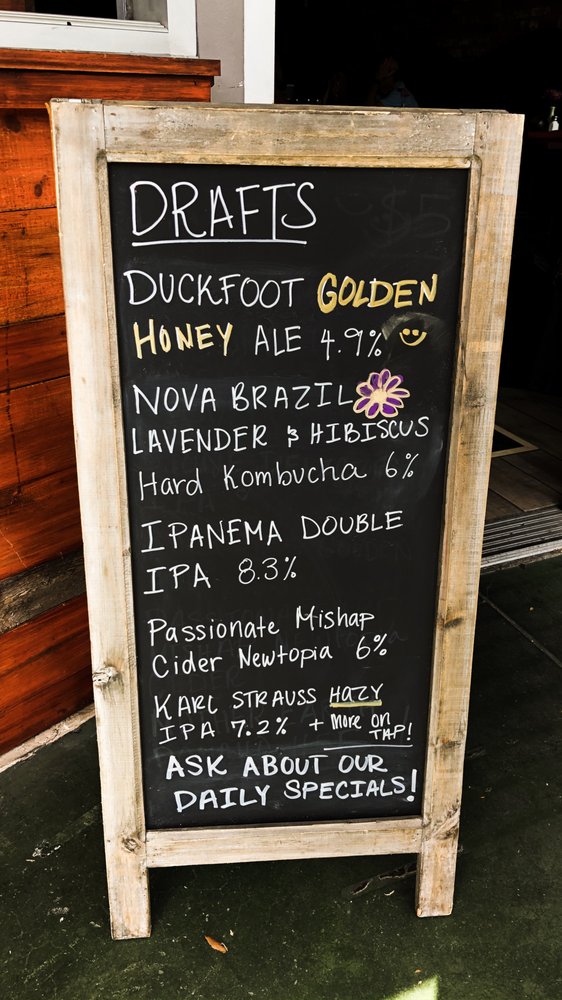 DRAFTS
DUCKFOOT GOLDEN
HONEY ALE 4.9%
NOVA BRAZIL
LAVENDER & HIBISCUS
Hard Kombucha 6%
IPANEMA DOUBLE
IPA 8.3%
Passionate Mishap
Cider Newtopia 6%
KARL STRAUSS HAZY
IPA 7.2% + More on
TAP!
ASK ABOUT OUR
DAILY SPECIALS!